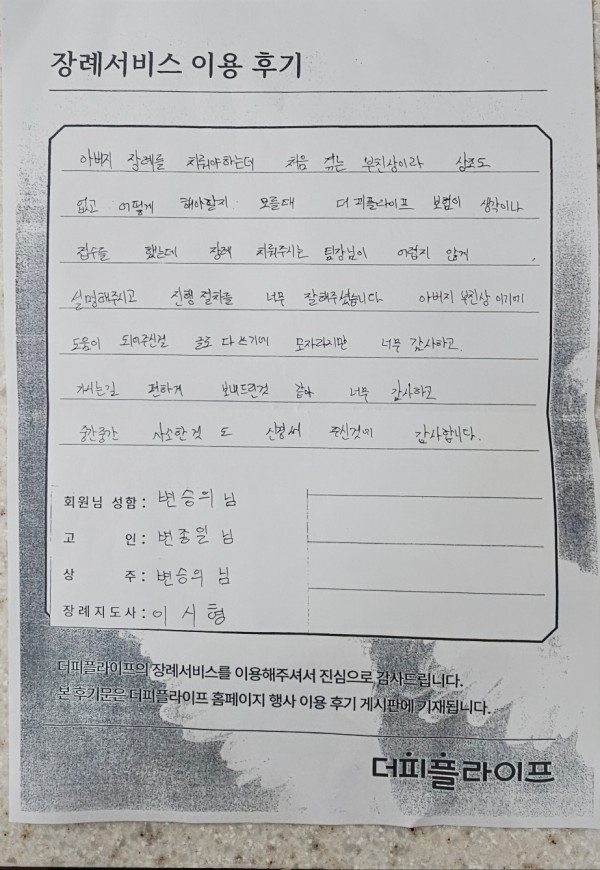 장례서비스 이용 후기
아버지 장례를 치뤄야하는데 처음 겪는 부친상이라 상조도
없고 어떻게 해야할지 모를때 더피플라이프 보험이 생각이나
접수를 했는데 장례 치뤄주시는 팀장님이 어렵지 않게
설명해주시고 진행 절차를 너무 잘해주셨습니다 아버지 부친상 이기에
도움이 되어주신걸 글로 다 쓰기에 모자라지만 너무 감사하고
가시는길 편하게 보내드린것 같아 너무 감사하고
중간중간 사소한 것 도 신경써 주신것에 감사합니다.
회원님 성함 : 변승의 님
고 인 : 변중일 님
상 주 : 변승의 님
장례지도사 : 이 시 형
더피플라이프의 장례서비스를 이용해주셔서 진심으로 감사드립니다.
본 후기문은 더피플라이프 홈페이지 행사 이용 후기 게시판에 기재됩니다.
더피플라이프